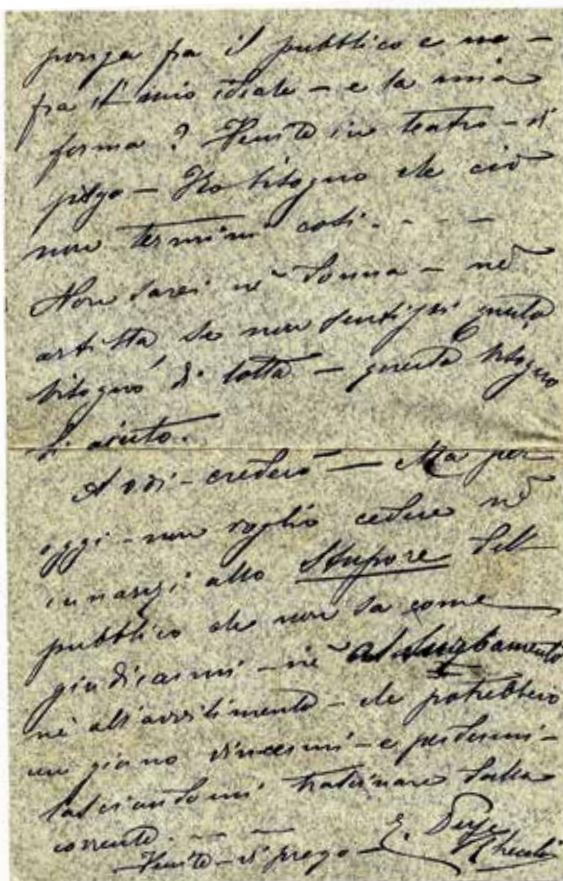 ponga fra il pubblico e me –
fra il mio ideale – e la mia
forma? Venite in teatro – vi
prego – Ho bisogno che ciò
non termini così. - - -
Non sarei nè donna – nè
artista se non sentissi questo
bisogno di lotta – questo bisogno
di aiuto.
A voi – crederò – Ma per
oggi – non voglio cedere nè
innanzi allo Stupore del
pubblico che non sa come
giudicarmi – nè
nè all'avvilimento – che potrebbero
un giorno vincermi – e perdermi –
lasciandomi trascinare dalla
corrente. - -
Venite – vi prego –
E. Duse Checchi